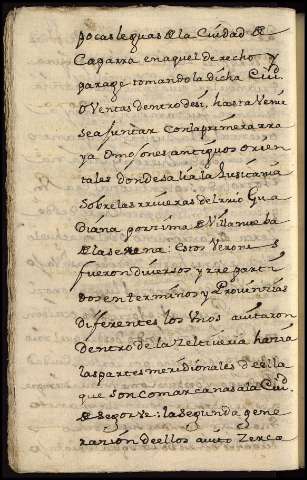 pocas leguas de la Ciudad de
Caparra en aquel derecho y
parage tomando la dicha Ciud.
o Ventas dentro de si, hasta Venir
se a juntar con la primera ra
ya o mojones antiguos orien
tales donde salia la Lusitania
sobre las rriveras del rrio Gua
diana por sima de Villanueba
de la serena: estos Verones
fueron diversos y rrepartí
dos en terminos y Provinzias
diferentes los Unos avitaron
dentro de la Zeltiveria hazia
las partes meridionales de ella
que son comarcanas a la Ciud.
de segorve: la segunda gene
razión de ellos avito zerca